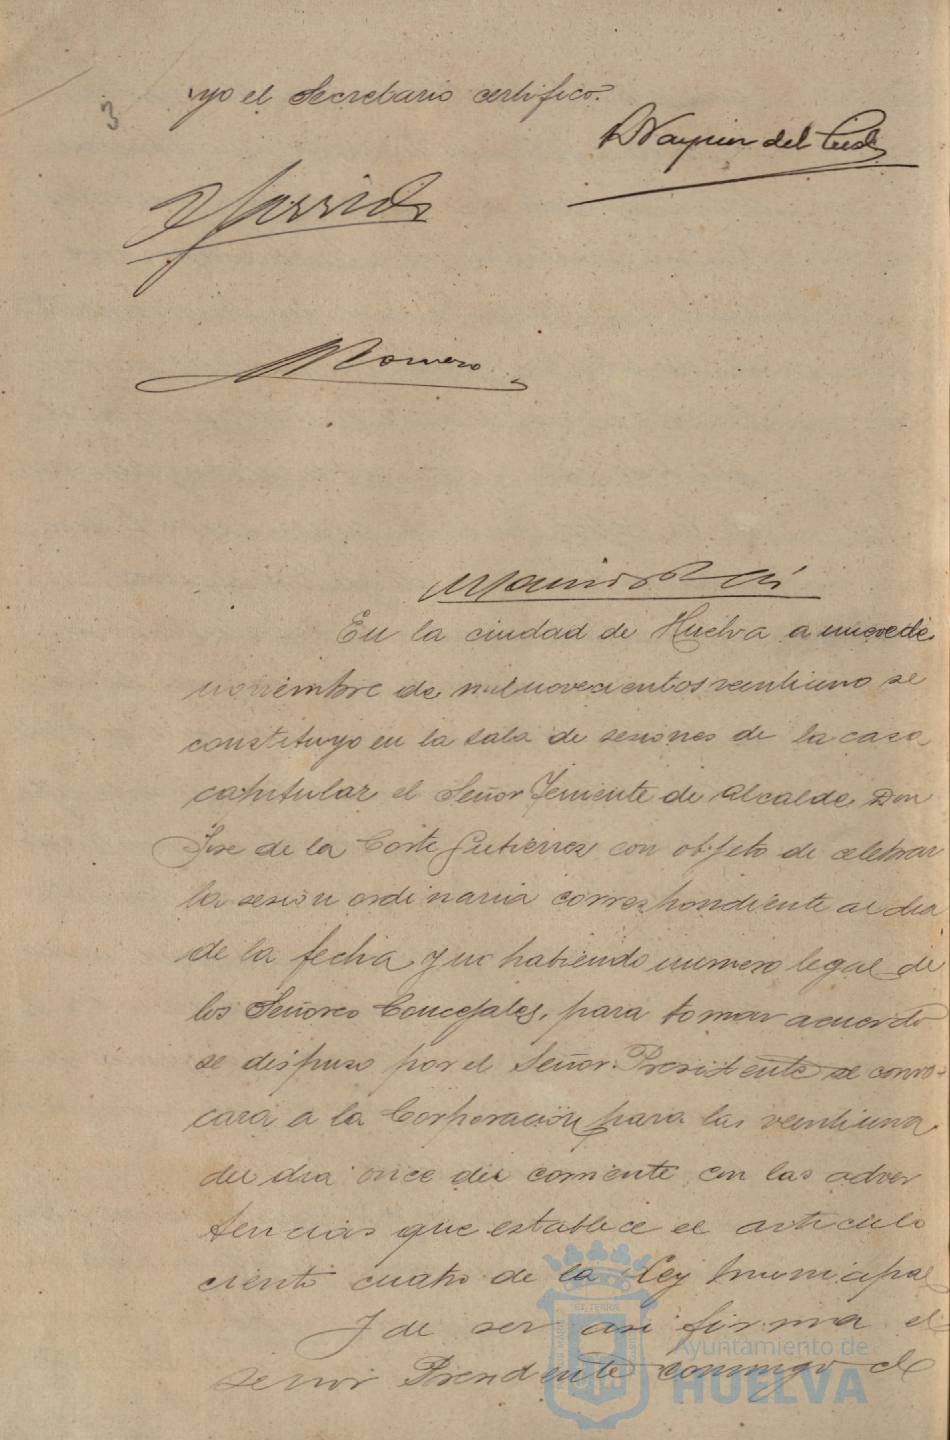 3
yo el Secretario certifico.
del
Garrido
Romero
En la ciudad de Huelva a nueve de
noviembre de mil novecientos veintiuno se
constituyo en la sala de sesiones de la casa
capitular el Señor Teniente de Alcalde Don
Jose de la Corte Gutierrez con objeto de celebrar
la sesion ordinaria correspondiente al dia
de la fecha y no habiendo numero legal de
los Señores Concejales, para tomar acuerdo
se dispuso por el Señor Presidente se convo-
cara a la Corporación para las veintiuna
del dia once del corriente con las adver
tencias que establece el articulo
ciento cuatro de la Ley municipal
Y de ser asi firma el
señor Presidente conmigo el
Ayuntamiento de
HUELVA